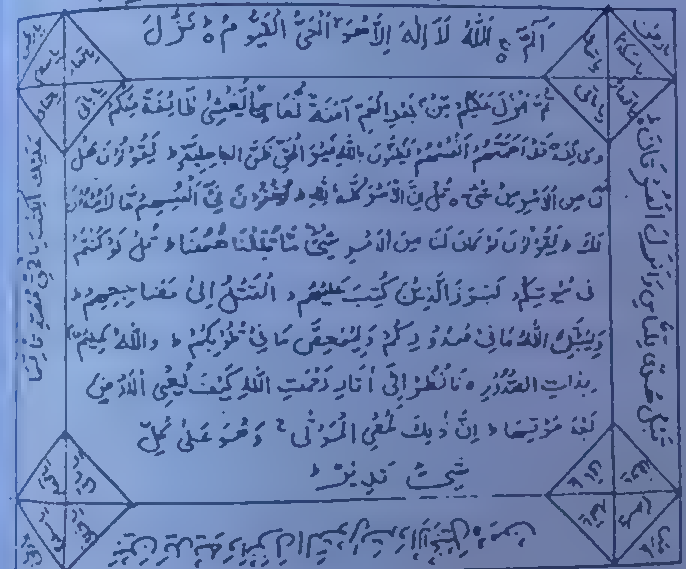 الٓمّٓ ۚ اَللّٰهُ لَآ اِلٰهَ اِلَّا هُوَ الْحَىُّ الْقَيُّوْمُ ہ نَزَّلَ
عَلَيْكَ الْكِتٰبَ بِالْحَقِّ مُصَدِّقًا لِّمَا
بَيْنَ يَدَيْهِ وَاَنْزَلَ التَّوْرٰىةَ وَالْاِنْجِيْلَ ہ مِنْ
قَبْلُ هُدًى لِّلنَّاسِ وَاَنْزَلَ الْفُرْقَانَ ط
ثُمَّ اَنْزَلَ عَلَيْكُمْ مِّنْ بَعْدِ الْغَمِّ اَمَنَةً نُّعَاسًا يَّغْشٰى طَآئِفَةً مِّنْكُمْ
وَطَآئِفَةٌ قَدْ اَهَمَّتْهُمْ اَنْفُسُهُمْ يَظُنُّوْنَ بِاللّٰهِ غَيْرَ الْحَقِّ ظَنَّ الْجَاهِلِيَّةِ ط يَقُوْلُوْنَ هَلْ
لَّنَا مِنَ الْاَمْرِ مِنْ شَىْءٍ ہ قُلْ اِنَّ الْاَمْرَ كُلَّهٗ لِلّٰهِ ط يُخْفُوْنَ فِىْٓ اَنْفُسِهِمْ مَّا لَا يُبْدُوْنَ
لَكَ ط يَقُوْلُوْنَ لَوْ كَانَ لَنَا مِنَ الْاَمْرِ شَىْءٌ مَّا قُتِلْنَا هٰهُنَا ط قُلْ لَّوْ كُنْتُمْ
فِىْ بُيُوْتِكُمْ لَبَرَزَ الَّذِيْنَ كُتِبَ عَلَيْهِمُ الْقَتْلُ اِلٰى مَضَاجِعِهِمْ ط
وَلِيَبْتَلِىَ اللّٰهُ مَا فِىْ صُدُوْرِكُمْ وَلِيُمَحِّصَ مَا فِىْ قُلُوْبِكُمْ ط وَاللّٰهُ عَلِيْمٌۢ
بِذَاتِ الصُّدُوْرِ ہ فَانْظُرْ اِلٰٓى اٰثَارِ رَحْمَتِ اللّٰهِ كَيْفَ يُحْىِ الْاَرْضَ
بَعْدَ مَوْتِهَا ط اِنَّ ذٰلِكَ لَمُحْىِ الْمَوْتٰى ۚ وَهُوَ عَلٰى كُلِّ
شَىْءٍ قَدِيْرٌ ط